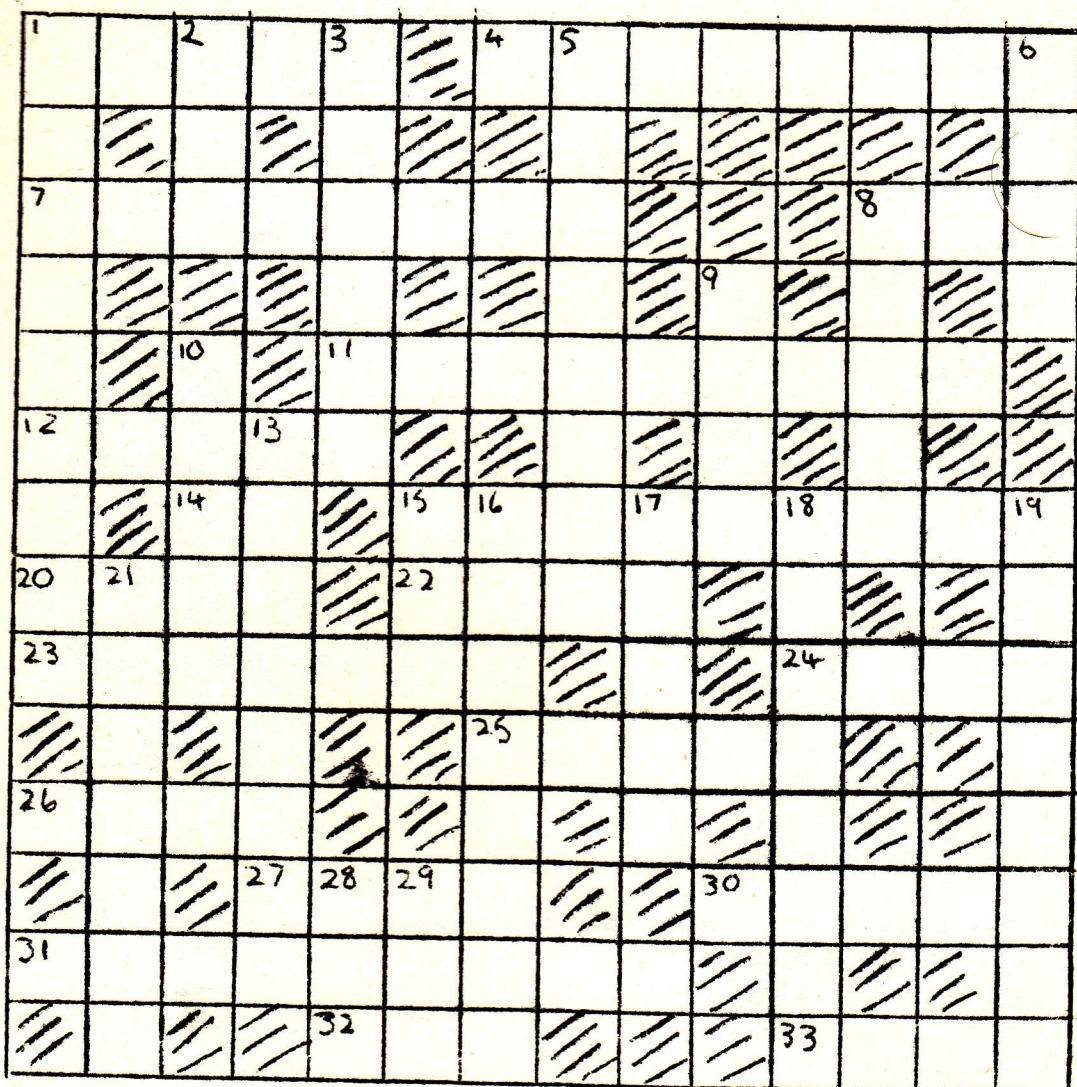 1 2 3 4 5 6
7 8
9
10 11
12 13
14 15 16 17 18 19
20 21 22
23 24
25
26
27 28 29 30
31
32 33